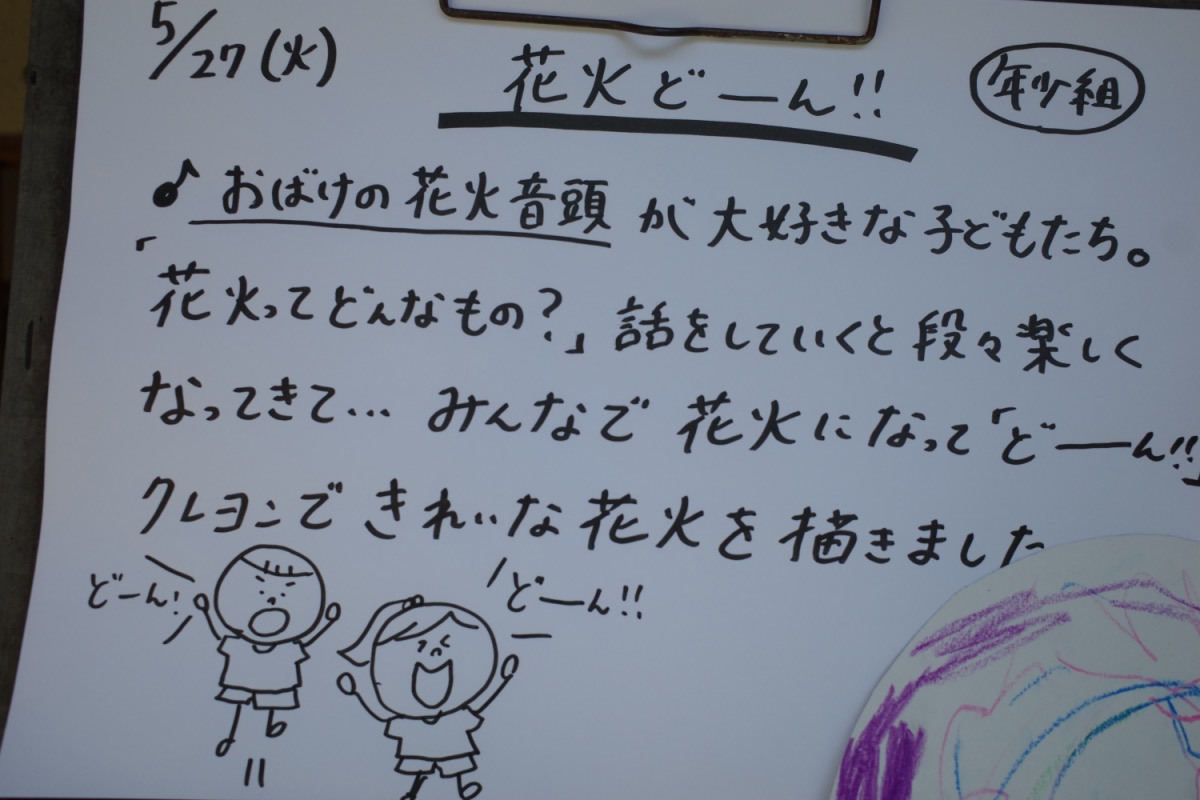 5/27(火)
花火どーん!!
年少組
♪おばけの花火音頭が大好きな子どもたち。
「花火ってどんなもの?」話をしていくと段々楽しく
なってきて… みんなで花火になって「どーーん!!」
クレヨンできれいな花火を描きました
どーん!
どーん!!